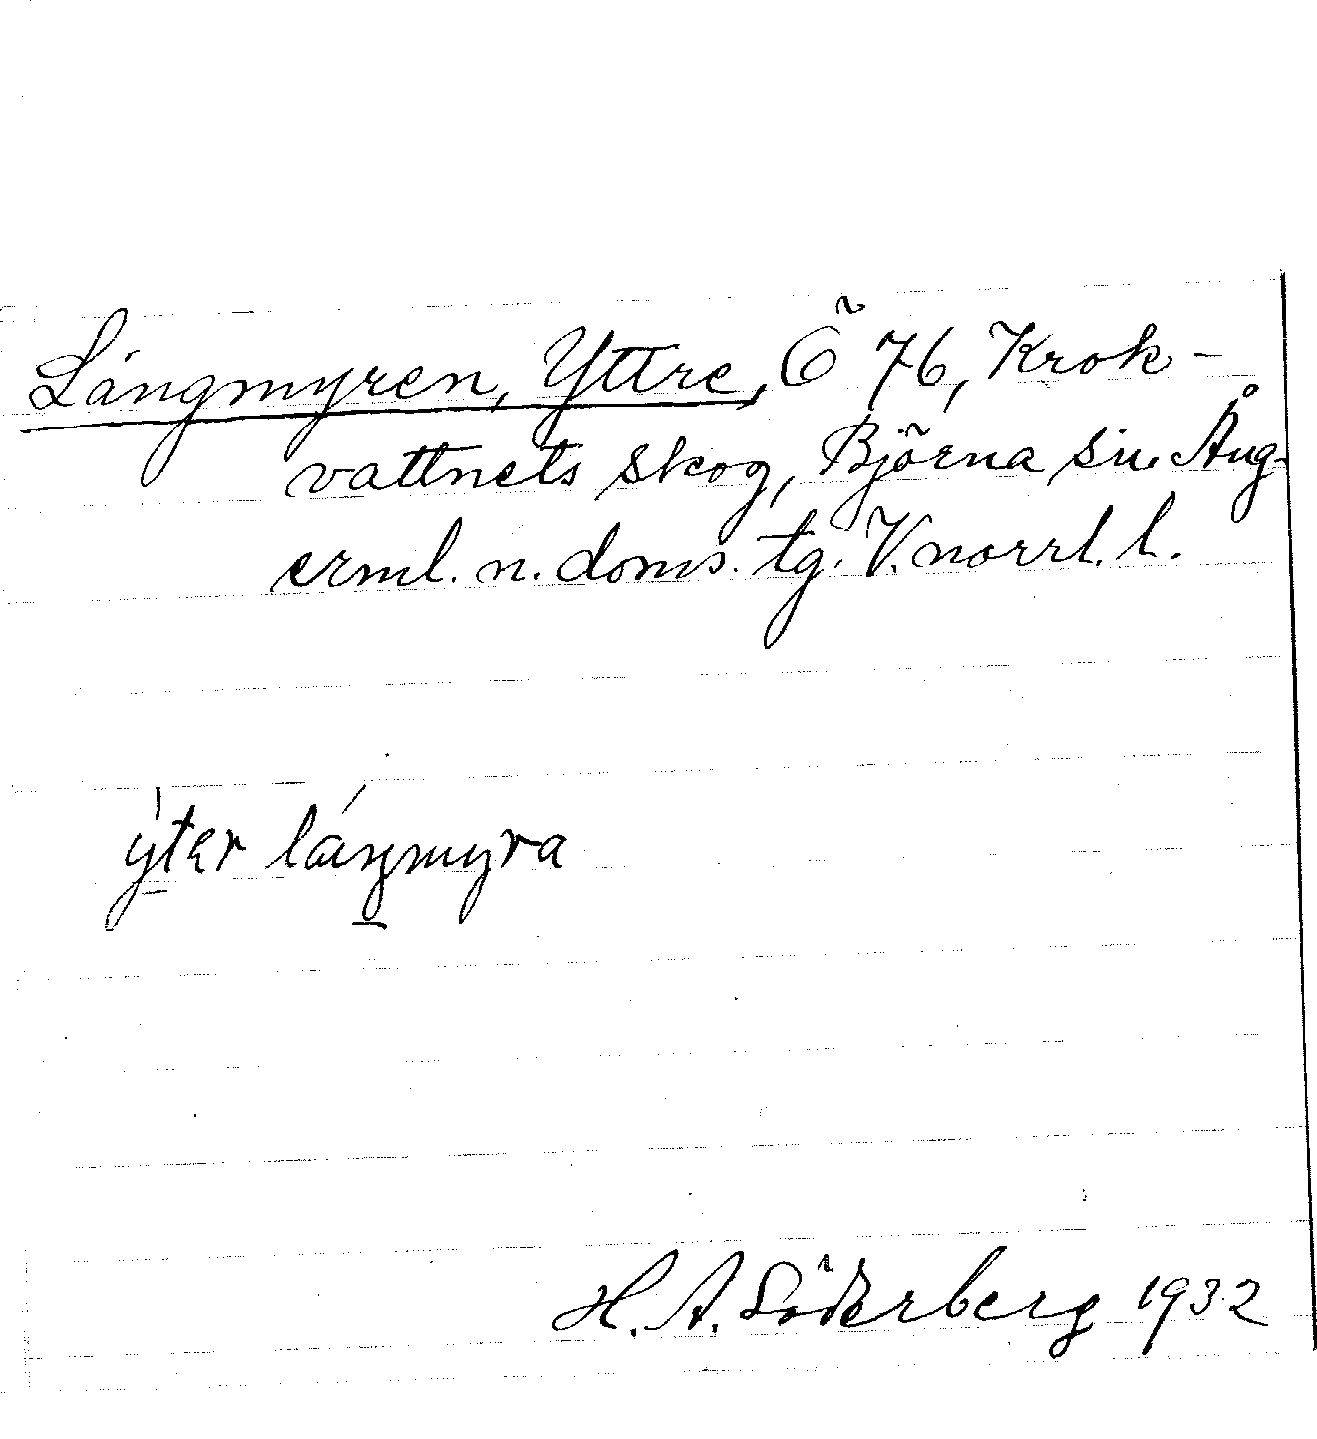 Långmyren, Yttre, Ö 76, Krok-
vattnets skog, Björna sn. Ång-
erml. n. doms. tg. V.norrl. l.
yter låŋmyra
H. A. Söderberg 1932